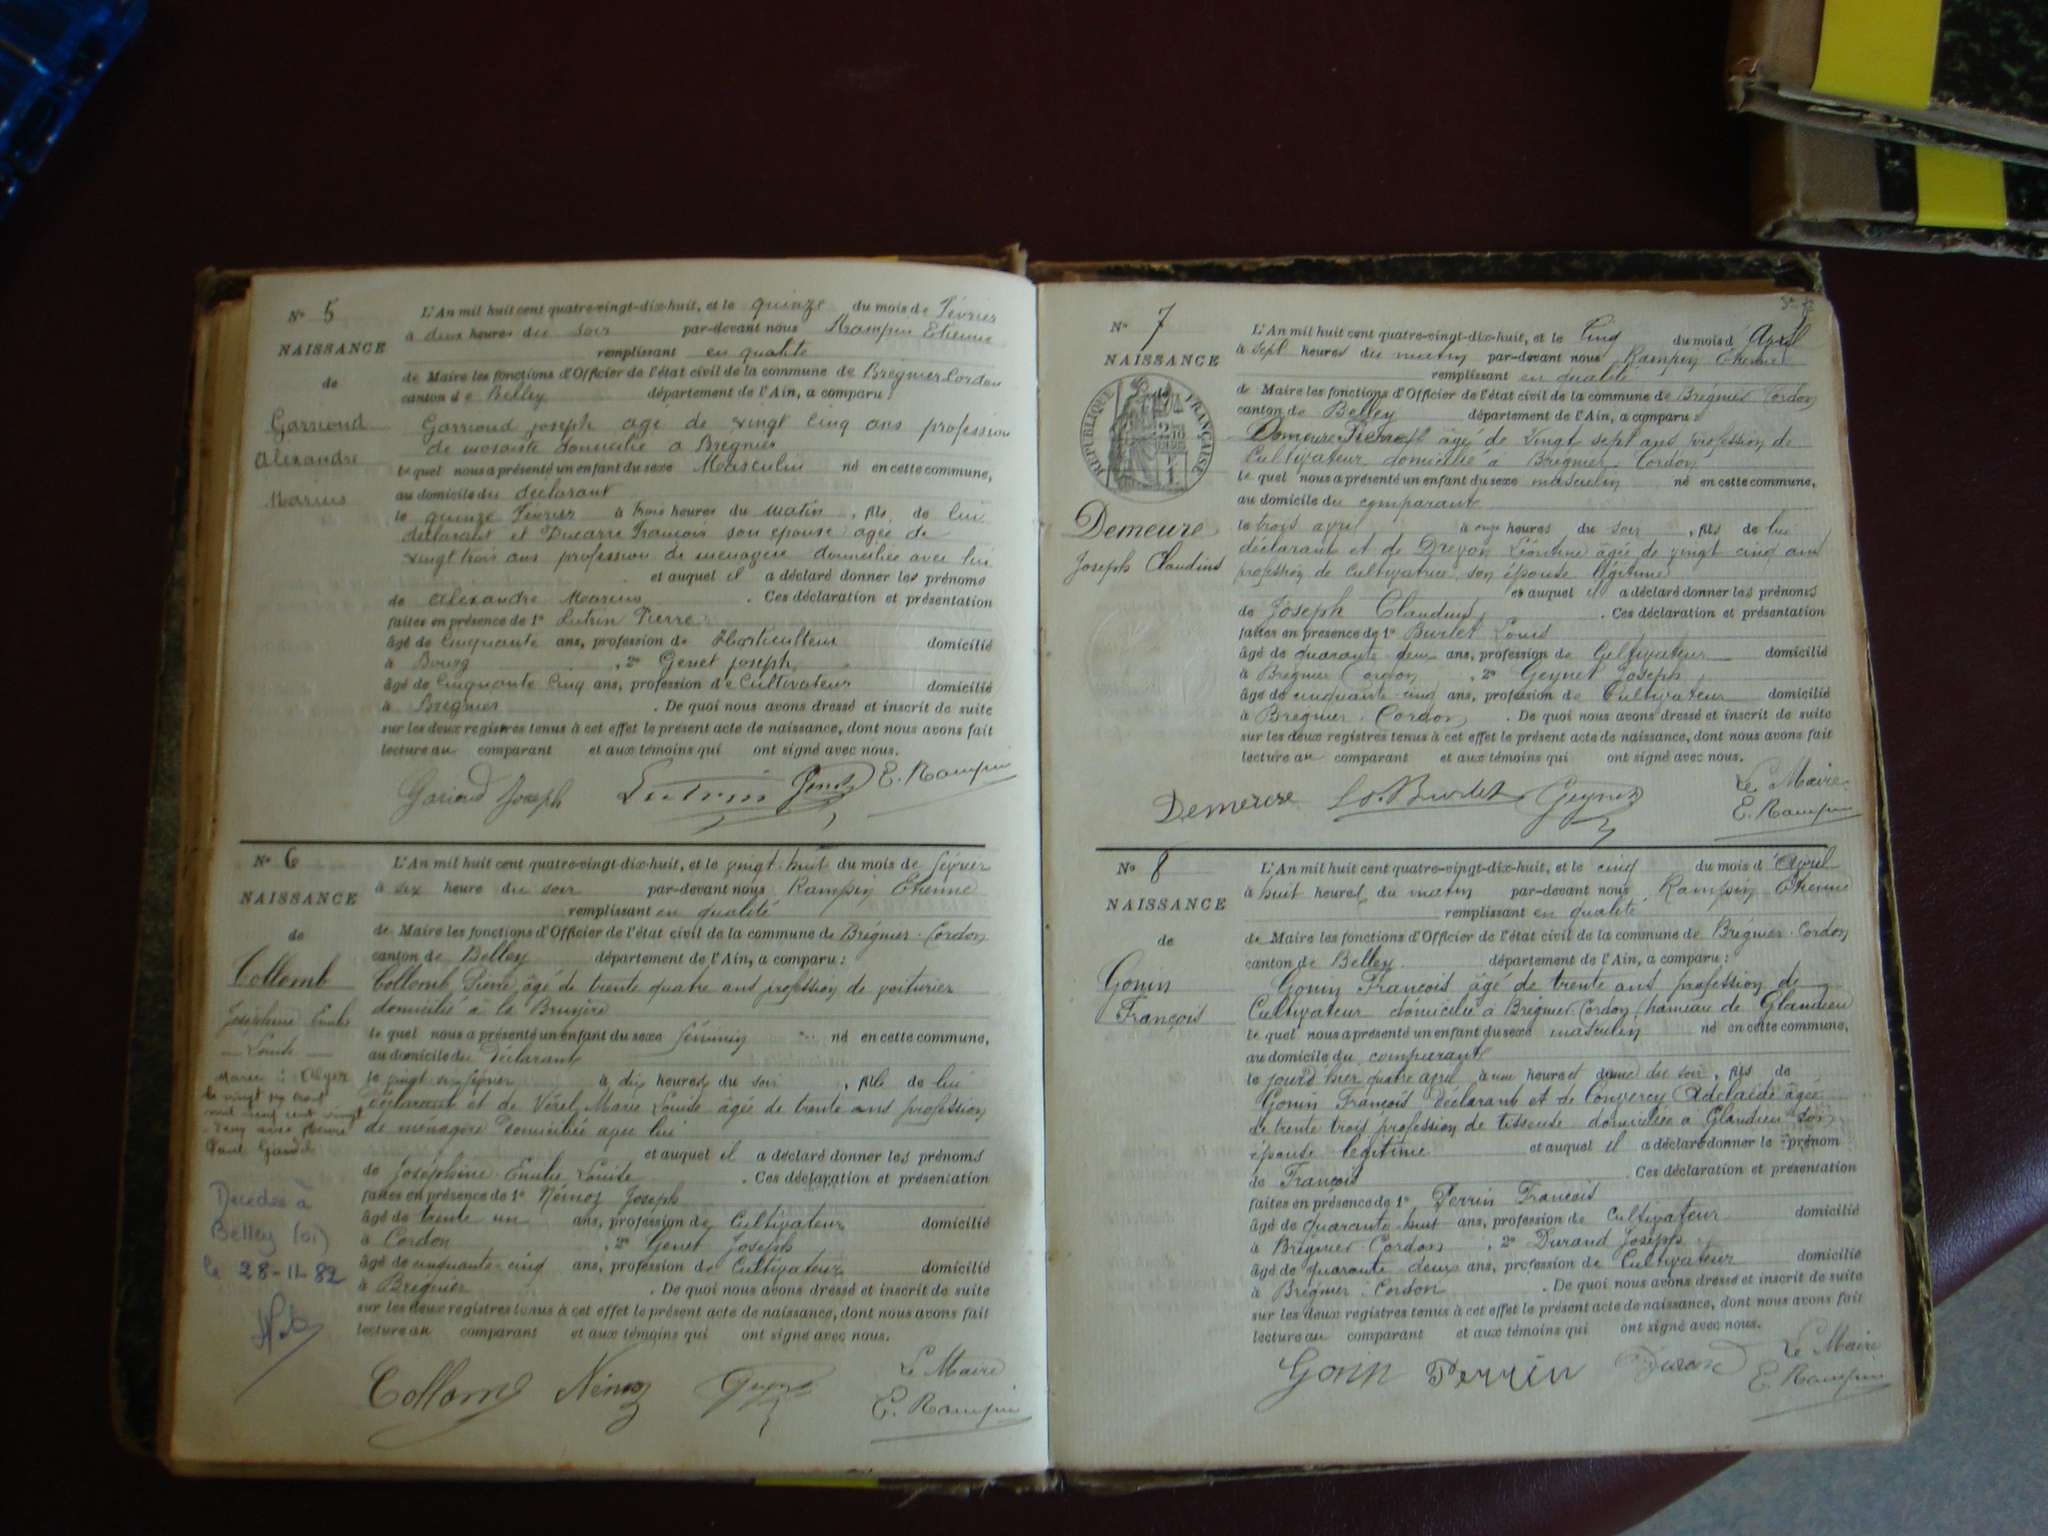 N° 5
NAISSANCE
de
Garnoud
Alexandre
Marius
L'An mil huit cent quatre-vingt-dix-huit, et le quinze du mois de Février
à deux heures du soir par-devant nous Rampin Etienne
remplissant en qualité
de Maire les fonctions d'Officier de l'état civil de la commune de Brégnier Cordon
canton de Belley département de l'Ain, a comparu :
Garnoud Joseph agé de vingt cinq ans profession
de domicilié a Brégnier
lequel nous a présenté un enfant du sexe Masculin né en cette commune,
au domicile du déclarant
le quinze Février à trois heures du matin, fils de lui
déclarant et Ducarre son épouse agée de
vingt trois ans profession de ménagère domiciliée avec lui
et auquel il a déclaré donner les prénoms
de Alexandre Marius. Ces déclaration et présentation
faites en présence de 1° Lutrin Pierre
âgé de Cinquante ans, profession de Horticulteur domicilié
à Bourg, 2° Genet Joseph
âgé de Cinquante Cinq ans, profession de Cultivateur domicilié
à Brégnier. De quoi nous avons dressé et inscrit de suite
sur les deux registres tenus à cet effet le présent acte de naissance, dont nous avons fait
lecture au comparant et aux témoins qui ont signé avec nous.
Joseph Lutrin E. Rampin
N° 6
NAISSANCE
de
Collomb
Joséphine Emilie
— Louise —
le vingt six
mil neuf cent vingt
avec
Paul
Décédée à
Belley (01)
le 28-11-82
L'An mil huit cent quatre-vingt-dix-huit, et le vingt-huit du mois de février
à six heure du soir par-devant nous Rampin Etienne
remplissant en qualité
de Maire les fonctions d'Officier de l'état civil de la commune de Brégnier-Cordon
canton de Belley département de l'Ain, a comparu :
Collomb Pierre, âgé de trente quatre ans profession de voiturier
domicilié à la Bruyère
lequel nous a présenté un enfant du sexe féminin né en cette commune,
au domicile du déclarant
le vingt six février à dix heures du soir, fille de lui
déclarant et de Vérel Marie Louise âgée de trente ans profession
de ménagère domiciliée avec lui
et auquel il a déclaré donner les prénoms
de Joséphine Emilie Louise. Ces déclaration et présentation
faites en présence de 1° Némoz Joseph
âgé de trente un ans, profession de Cultivateur domicilié
à Cordon, 2° Genet Joseph
âgé de cinquante-cinq ans, profession de Cultivateur domicilié
à Brégnier. De quoi nous avons dressé et inscrit de suite
sur les deux registres tenus à cet effet le présent acte de naissance, dont nous avons fait
lecture au comparant et aux témoins qui ont signé avec nous.
Collomb Némoz Le Maire
E. Rampin
N° 7
NAISSANCE
de
RÉPUBLIQUE FRANÇAISE
Demeure
Joseph Claudius
L'An mil huit cent quatre-vingt-dix-huit, et le Cinq du mois d'Avril
à sept heures du matin par-devant nous Rampin Etienne
remplissant en qualité
de Maire les fonctions d'Officier de l'état civil de la commune de Brégnier Cordon
canton de Belley département de l'Ain, a comparu :
Demeure âgé de vingt sept ans profession de
Cultivateur domicilié à Brégnier-Cordon
lequel nous a présenté un enfant du sexe masculin né en cette commune,
au domicile du comparant
le trois avril à onze heures du soir, fils de lui
déclarant et de Dreyon Léontine âgée de vingt cinq ans
profession de Cultivatrice son épouse légitime
et auquel il a déclaré donner les prénoms
de Joseph Claudius. Ces déclaration et présentation
faites en présence de 1° Burlet Louis
âgé de quarante deux ans, profession de Cultivateur domicilié
à Brégnier Cordon, 2° Geynet Joseph
âgé de cinquante-cinq ans, profession de Cultivateur domicilié
à Brégnier-Cordon. De quoi nous avons dressé et inscrit de suite
sur les deux registres tenus à cet effet le présent acte de naissance, dont nous avons fait
lecture au comparant et aux témoins qui ont signé avec nous.
Demeure Ls. Burlet Geynet Le Maire
E. Rampin
N° 8
NAISSANCE
de
Gonin
François
L'An mil huit cent quatre-vingt-dix-huit, et le cinq du mois d'Avril
à huit heures du matin par-devant nous Rampin Etienne
remplissant en qualité
de Maire les fonctions d'Officier de l'état civil de la commune de Brégnier-Cordon
canton de Belley département de l'Ain, a comparu :
Gonin François âgé de trente ans profession de
Cultivateur domicilié à Brégnier-Cordon (hameau de Glandieu)
lequel nous a présenté un enfant du sexe masculin né en cette commune,
au domicile du comparant
le jourd'hier quatre avril à une heure et demie du soir, fils de
Gonin François déclarant et de Convercy Adélaïde âgée
de trente trois profession de tisseuse domiciliée à Glandieu son
épouse légitime et auquel il a déclaré donner le prénom
de François. Ces déclaration et présentation
faites en présence de 1° Perrin François
âgé de quarante-huit ans, profession de Cultivateur domicilié
à Brégnier Cordon, 2° Durand Joseph
âgé de quarante deux ans, profession de Cultivateur domicilié
à Brégnier-Cordon. De quoi nous avons dressé et inscrit de suite
sur les deux registres tenus à cet effet le présent acte de naissance, dont nous avons fait
lecture au comparant et aux témoins qui ont signé avec nous.
Gonin Perrin Durand Le Maire
E. Rampin